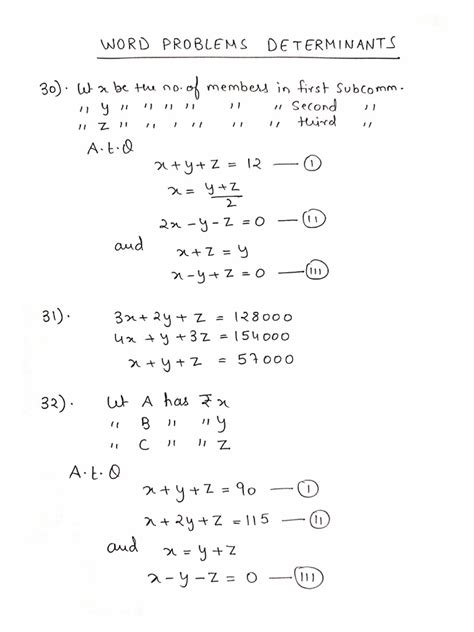 WORD PROBLEMS DETERMINANTS
30). Let x be the no. of members in first Subcomm.
" y " " " " " " Second "
" z " " " " " " third "
A.t.Q
x+y+z = 12 — (I)
x = y+z/2
2x-y-z=0 — (II)
and x+z = y
x-y+z=0 — (III)
31). 3x+2y+z = 128000
4x+y+3z=154000
x+y+z = 57000
32). Let A has ₹x
" B " " y
" C " " z
A.t.Q
x+y+z=90 — (I)
x+2y+z=115 — (II)
and x = y+z
x-y-z=0 — (III)